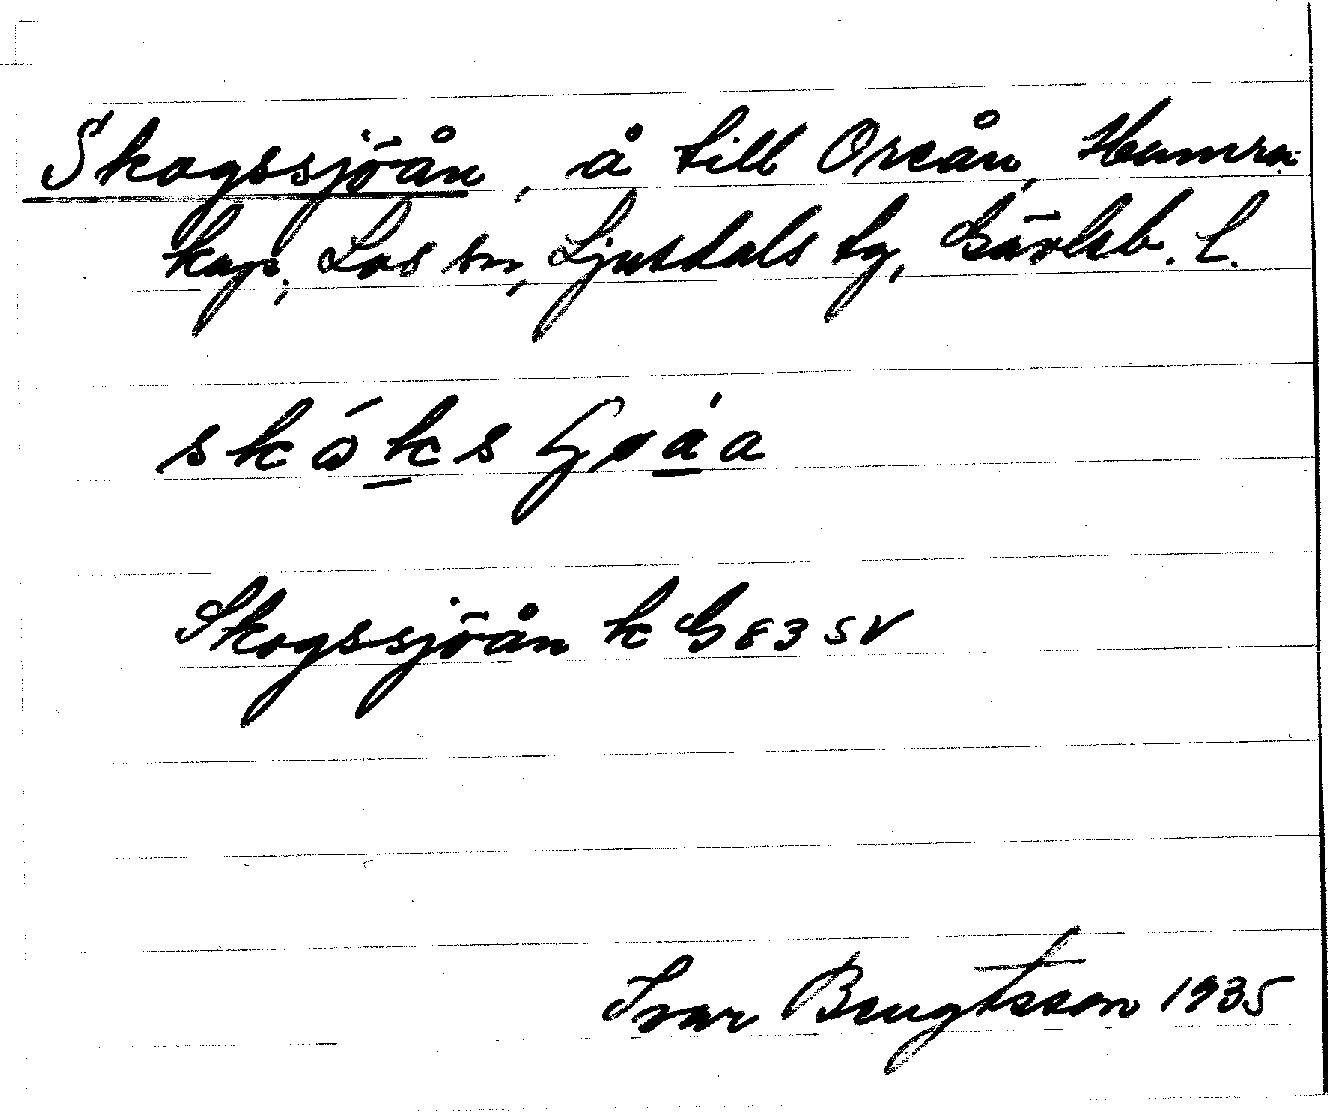 Skogssjöån, å till Oreån, Hamra
kap, Los sn, Ljusdals tg, Gävleb. l.
Skogssjöån k G 83 SV
Ivar Bengtsson 1935